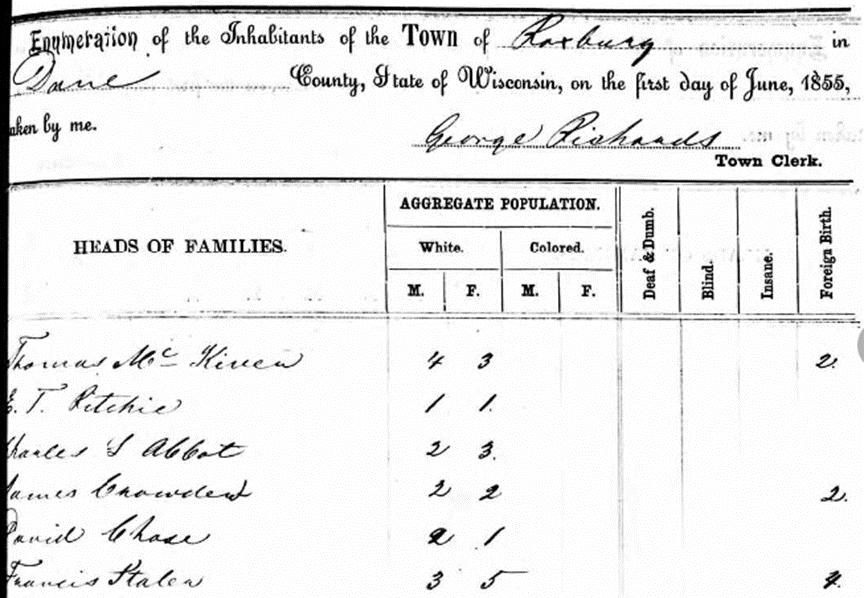 Enumeration of the Inhabitants of the Town of Roxbury in
Dane County, State of Wisconsin, on the first day of June, 1855,
aken by me.
George Richards
Town Clerk.
HEADS OF FAMILIES.
AGGREGATE POPULATION.
White. Colored.
M. F. M. F.
Deaf & Dumb.
Blind.
Insane.
Foreign Birth.
Thomas Mc 4 3 2.
E. T. Ritchie 1 1.
Charles S Abbot 2 3.
James Crowden 2 2 2.
David Chase 2 1
Francis 3 5 4.